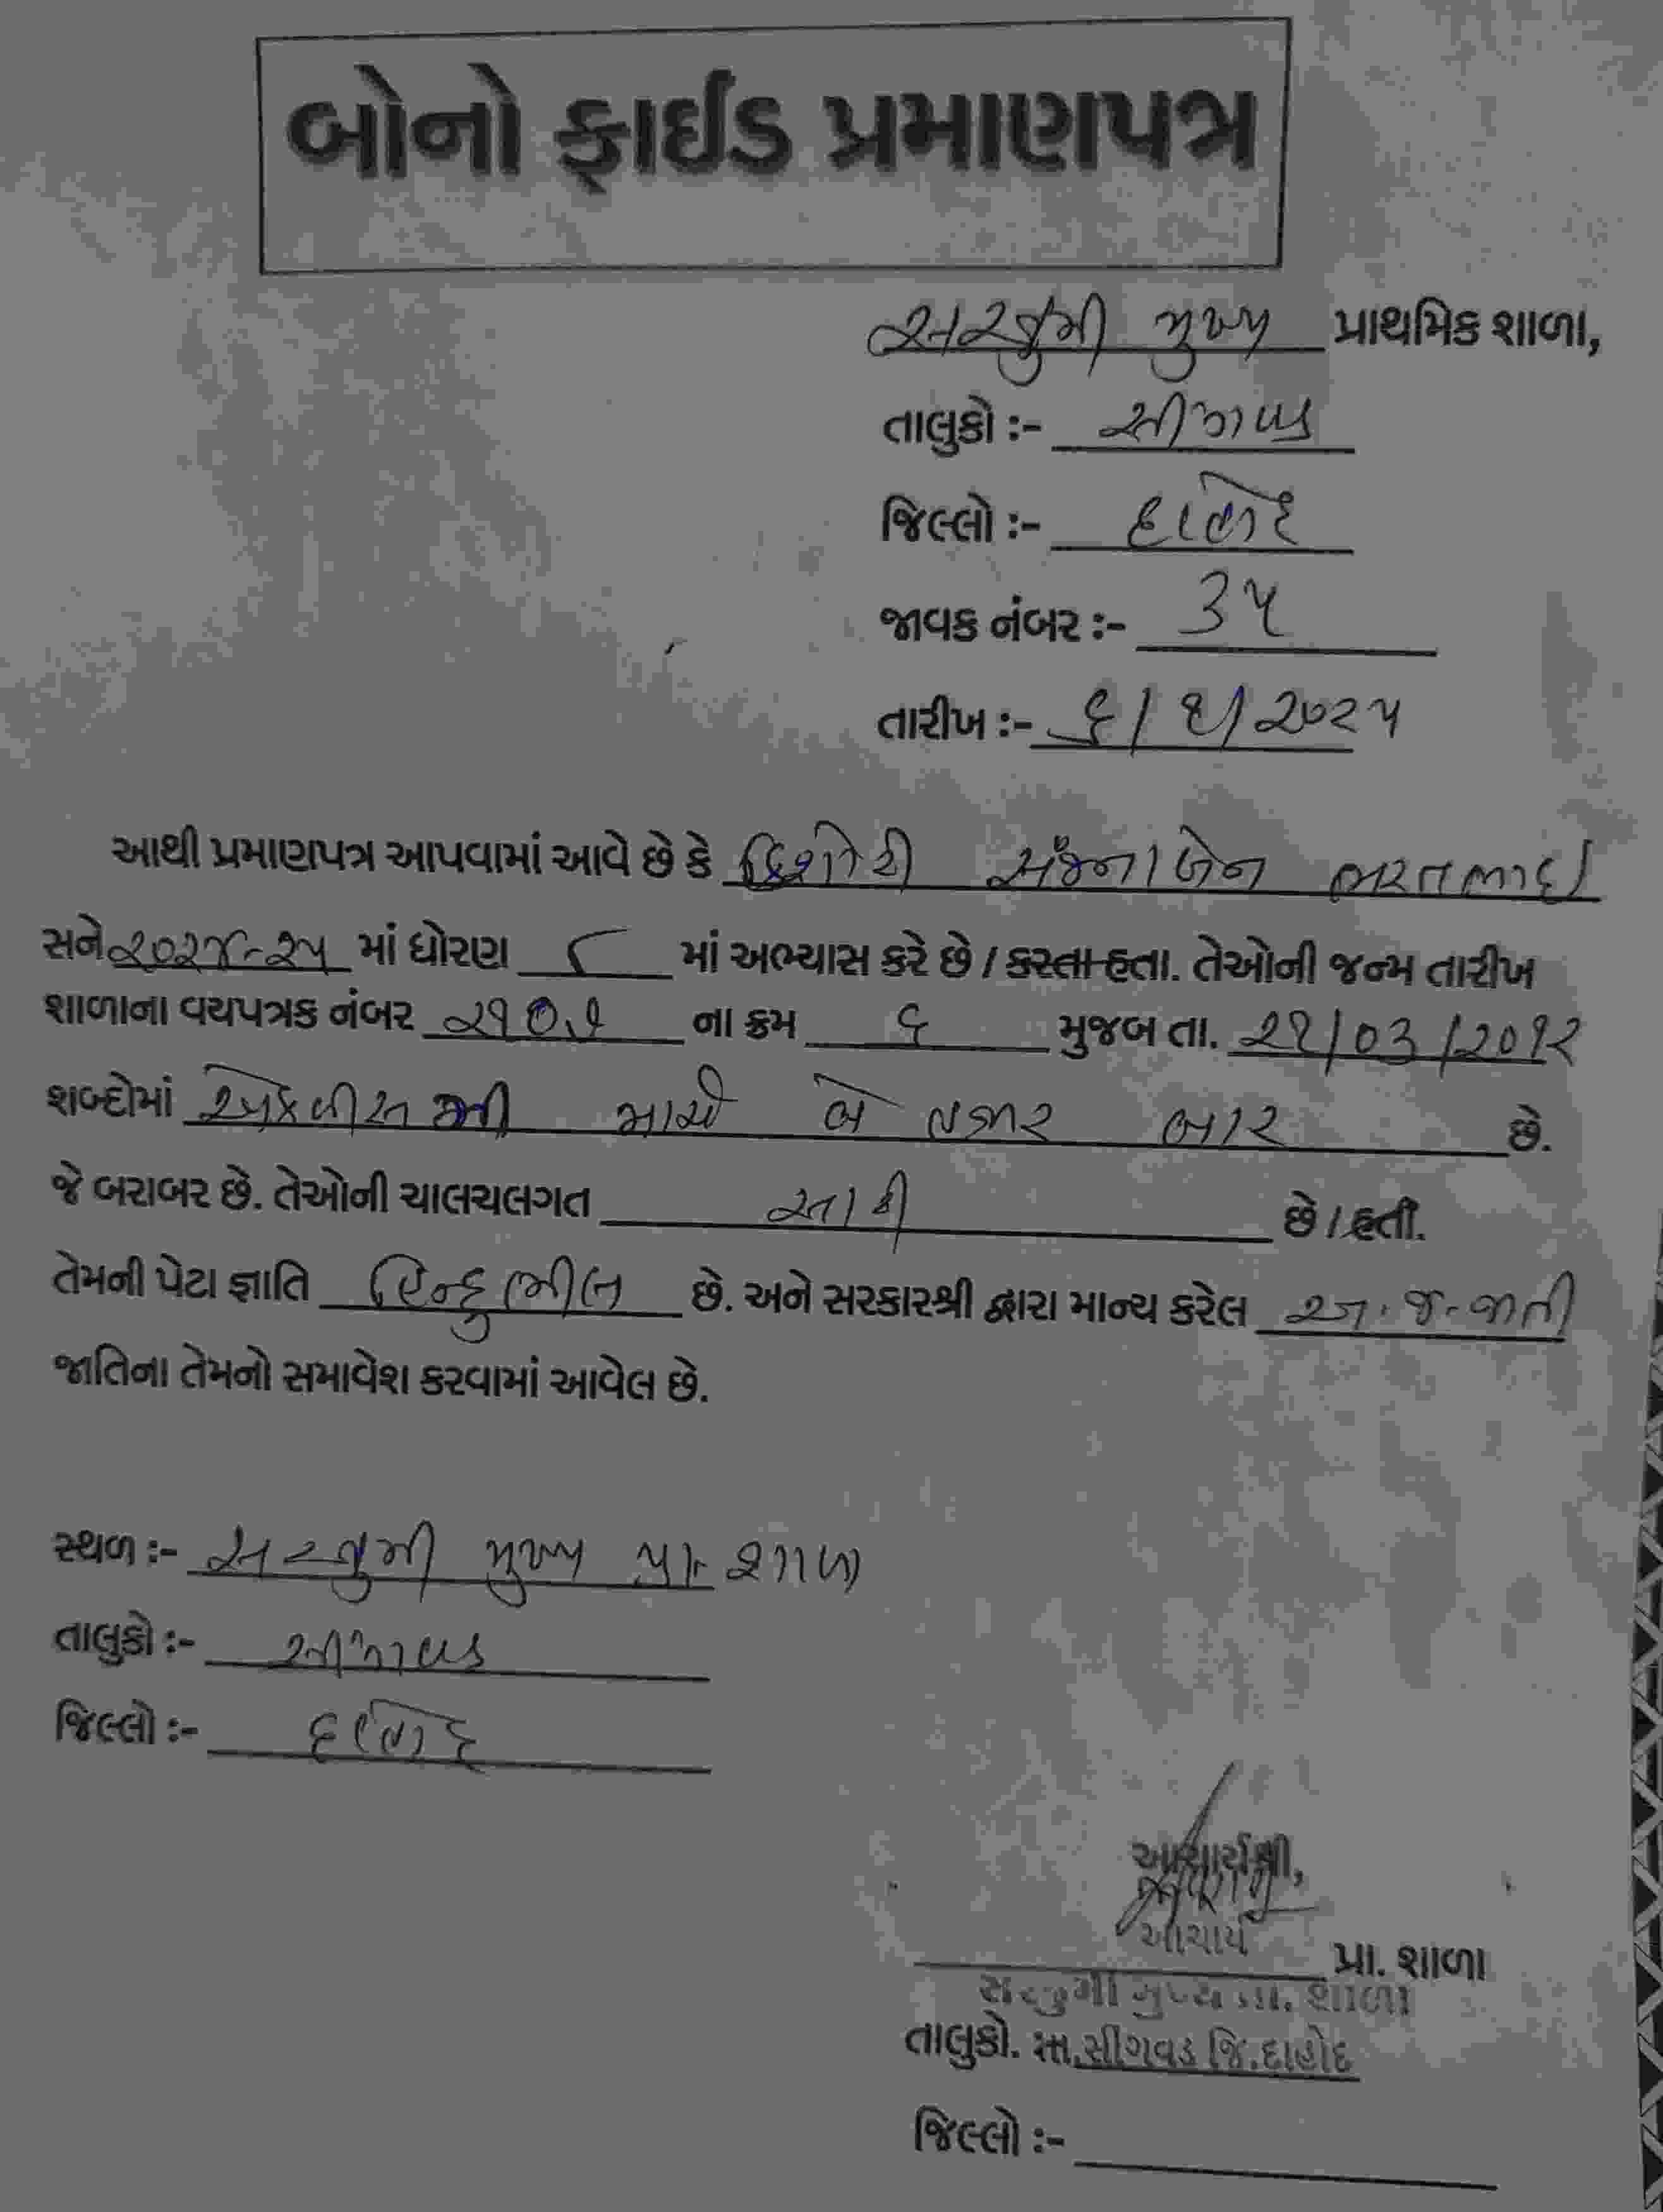 બોનો ફાઈડ પ્રમાણપત્ર
સરજુમી મુખ્ય પ્રાથમિક શાળા,
તાલુકો :- સીંગવડ
જિલ્લો :- દાહોદ
જાવક નંબર :- ૩૫
તારીખ :- ૬/૧/૨૦૨૫
આથી પ્રમાણપત્ર આપવામાં આવે છે કે કિશોરી સંજનાબેન ભરતભાઈ
સને ૨૦૨૪-૨૫ માં ધોરણ ૮ માં અભ્યાસ કરે છે / કરતા હતા. તેઓની જન્મ તારીખ
શાળાના વયપત્રક નંબર ના ક્રમ મુજબ તા. ૨૧/૦૩/૨૦૧૨
શબ્દોમાં એકવીસમી માર્ચ બે હજાર બાર છે.
જે બરાબર છે. તેઓની ચાલચલગત સારી છે / હતી.
તેમની પેટા જ્ઞાતિ હિન્દુ ભીલ છે. અને સરકારશ્રી દ્વારા માન્ય કરેલ અ.જ.જાતી
જાતિના તેમનો સમાવેશ કરવામાં આવેલ છે.
સ્થળ :- સરજુમી મુખ્ય પ્રા. શાળા
તાલુકો :- સીંગવડ
જિલ્લો :- દાહોદ
આચાર્યશ્રી,
આચાર્ય
પ્રા. શાળા
સરજુમી મુખ્ય પ્રા. શાળા
તાલુકો. તા.સીંગવડ જિ.દાહોદ
જિલ્લો :-